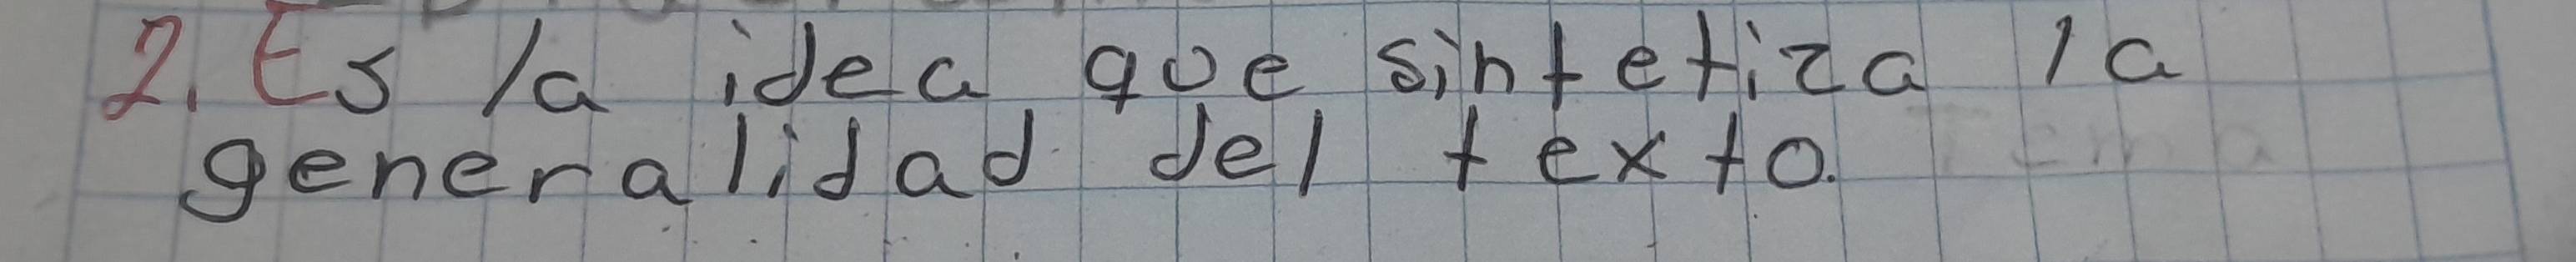 2. Es la idea que sintetiza la
generalidad del texto.